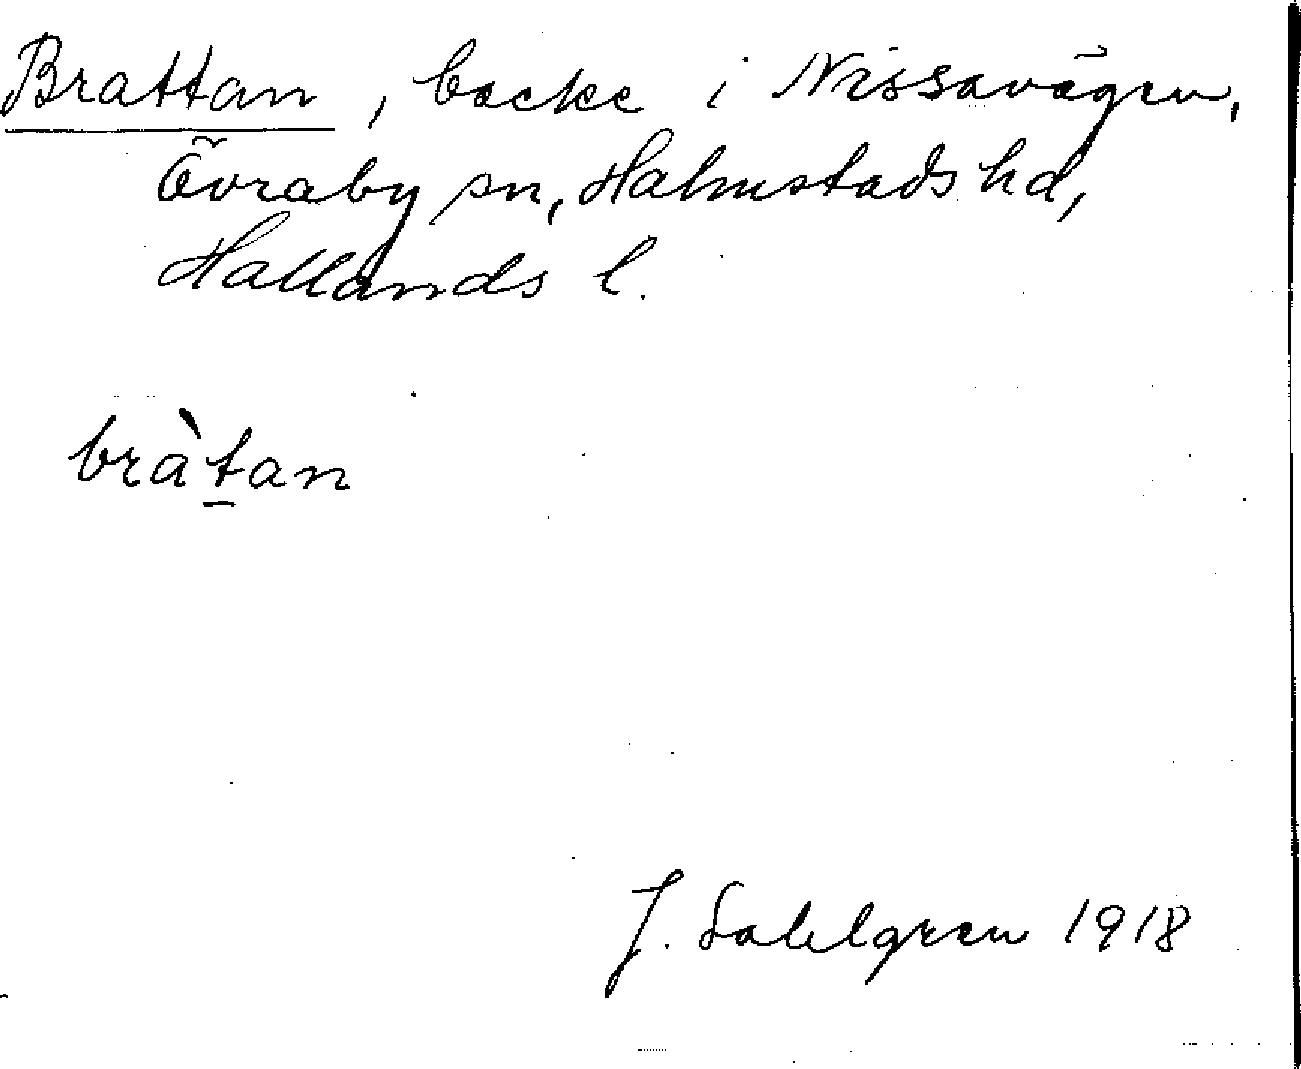 Brattan, backe i Nissavägen,
Övraby sn, Halmstads hd,
Hallands l.
bràṯan
J. Sahlgren 1918